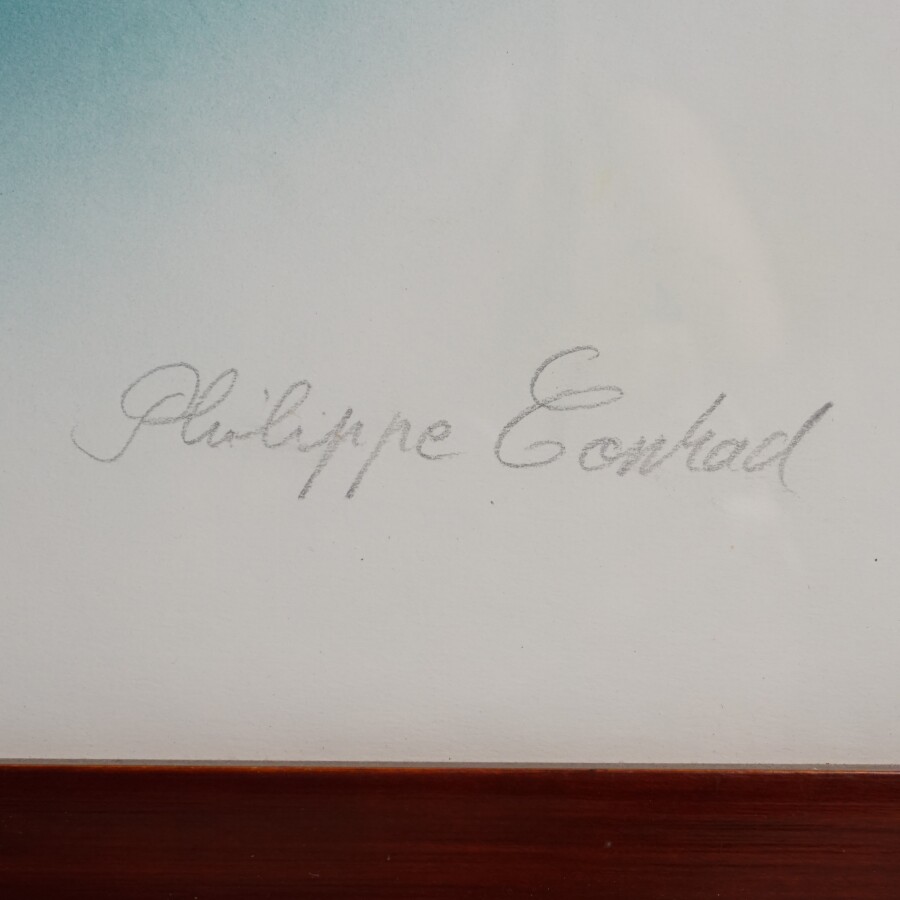 Philippe Conrad